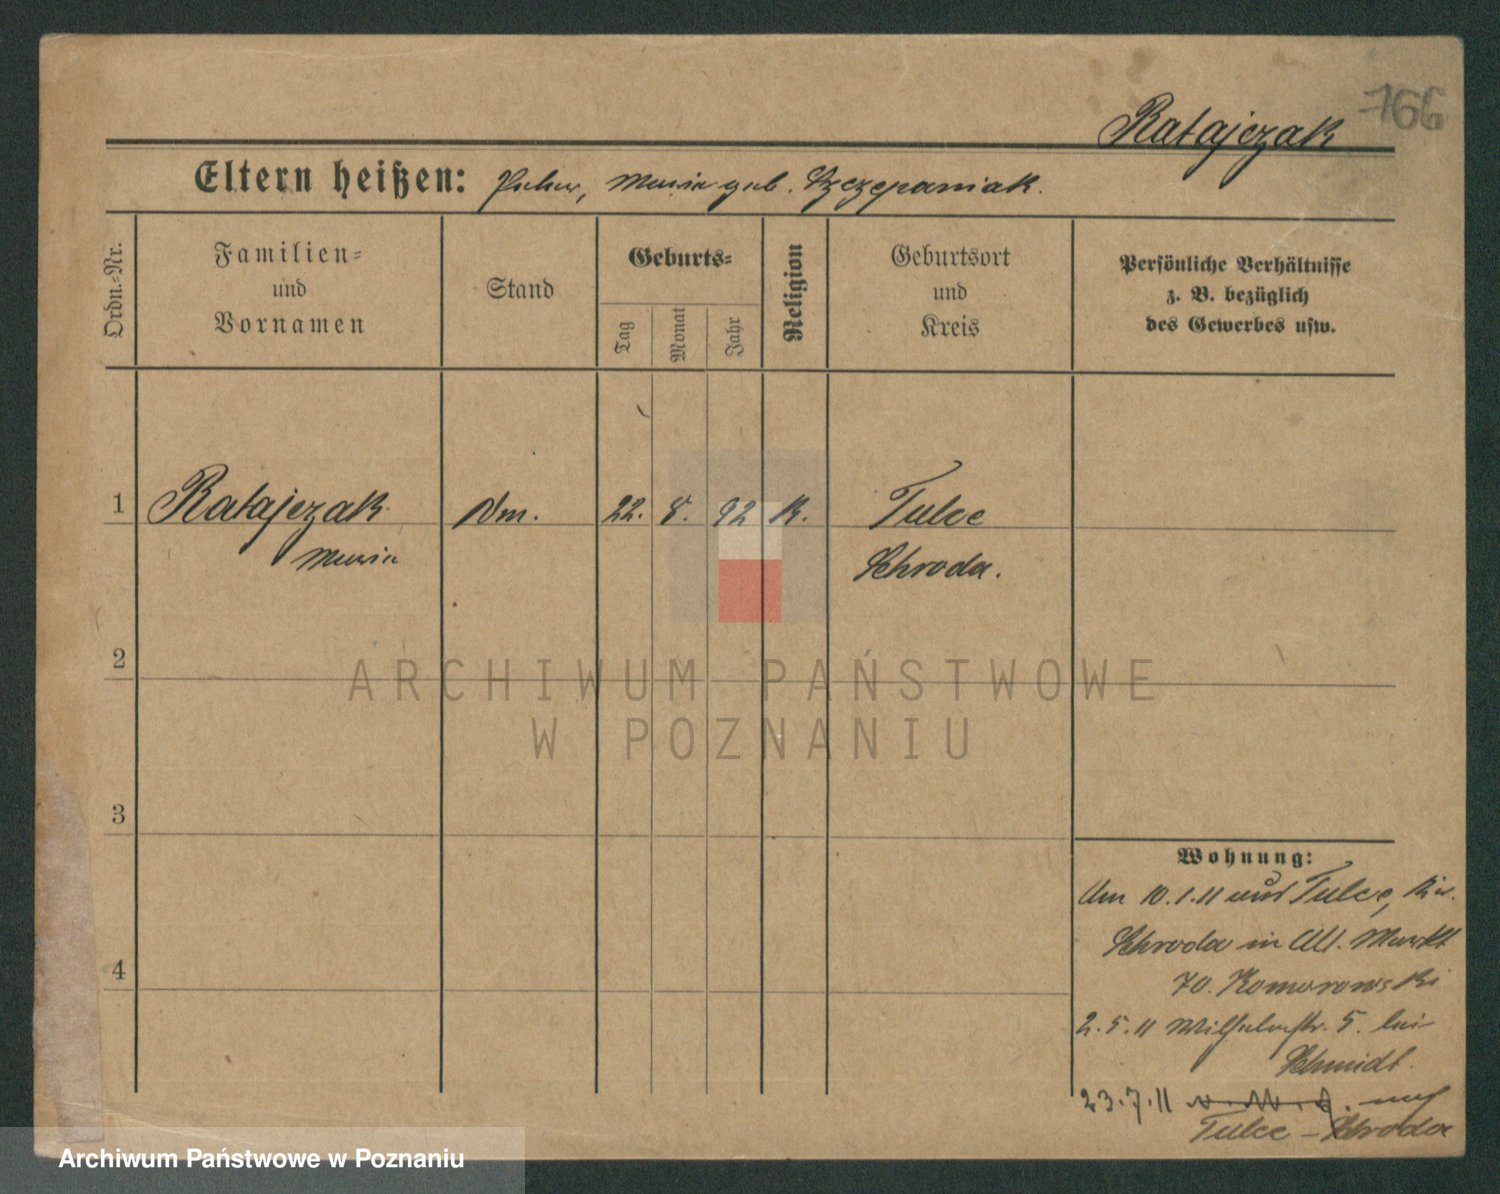 766
Ratajczak
Eltern heißen: Peter, Maria geb. Szczepaniak.
Ordn.-Nr.
Familien-
und
Vornamen
Stand
Geburts-
Tag
Monat
Jahr
Religion
Geburtsort
und
Kreis
Persönliche Verhältnisse
z. B. bezüglich
des Gewerbes usw.
1 Ratajczak Dm. 22. 8. 92 K. Tulce
Maria Schroda.
2
3
4
Wohnung:
Am 10.1.11 aus Tulce, Kr.
Schroda in Alt. Markt
70. Komorowski
2.5.11 Wilhelmstr. 5. bei
Schmidt.
23.7.11 nach
Tulce - Schroda
ARCHIWUM PAŃSTWOWE
W POZNANIU
Archiwum Państwowe w Poznaniu